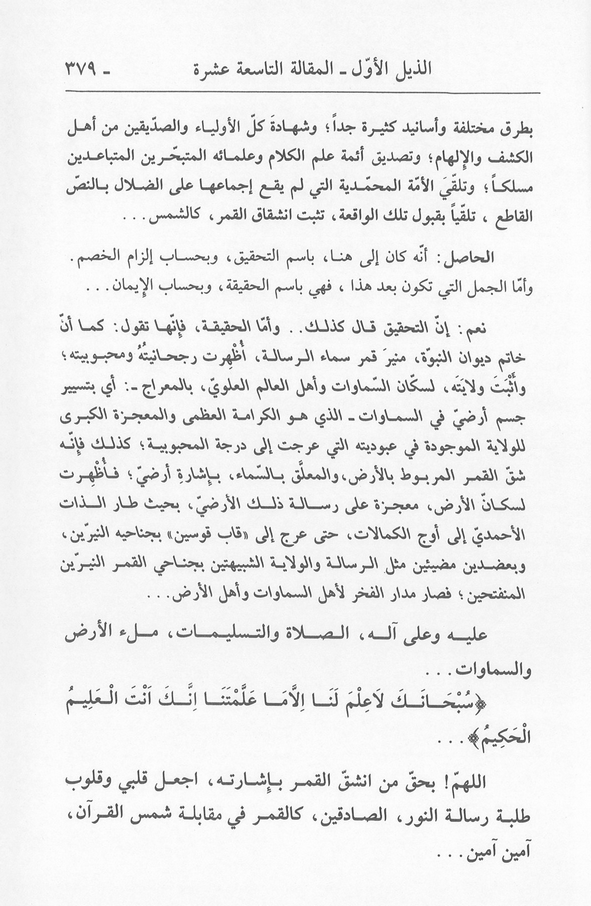 الذيل الأوّل ـ المقالة التاسعة عشرة ـ ٣٧٩
بطرق مختلفة وأسانيد كثيرة جداً؛ وشهادةَ كلّ الأولياء والصدّيقين من أهل
الكشف والإلهام؛ وتصديق أئمة علم الكلام وعلمائه المتبحّرين المتباعدين
مسلكاً؛ وتلقّيَ الأمّة المحمّدية التي لم يقع إجماعها على الضلال بالنصّ
القاطع ، تلقّياً بقبول تلك الواقعة، تثبت انشقاق القمر، كالشمس...
الحاصل: أنّه كان إلى هنـا، باسم التحقيق، وبحساب إلزام الخصم.
وأمّا الجمل التي تكون بعد هذا ، فهي باسم الحقيقة، وبحساب الإيمان...
نعم: إنّ التحقيق قال كذلك.. وأمّا الحقيقـة، فإنّهـا تقول: كمـا أنّ
خاتم ديوان النبوّة، منيرَ قمر سماء الرسالـة، أُظْهِرت رجحـانيتُهُ ومحبوبيته؛
وأُثْبِتَ ولايَتَه، لسكّان السّماوات وأهل العالم العلويّ، بالمعراج ـ: أي بتسيير
جسم أرضيّ في السمـاوات ـ الذي هـو الكرامـة العظمى والمعجـزة الكبرى
للولاية الموجودة في عبوديته التي عرجت إلى درجة المحبوبية؛ كذلـك فإنّـه
شقّ القمـر المربـوط بالأرض،والمعلّـق بالسّماء، بـإشارة أرضيّ؛ فـأُظْهِـرت
لسكـانّ الأرض، معجـزة على رسـالـة ذلـك الأرضيّ، بحيث طـار الـذات
الأحمديّ إلى أوج الكمالات، حتى عرج إلى «قاب قوسين» بجناحيه النيرّين،
وبعضـدين مضيئين مثل الـرسالة والولايـة الشبيهتين بجناحي القمر النيـرّين
المنفتحين؛ فصار مدار الفخر لأهل السماوات وأهل الأرض...
عليـه وعلى آلـه، الصـلاة والتسليمـات، مـلء الأرض
والسماوات...
﴿سُبْحَـانَـكَ لَاعِلْمَ لَنَـا اِلاَّمَـا عَلَّمْتَنَـا اِنَّـكَ اَنْتَ الْعَلِيـمُ
الْحَكِيمُ﴾...
اللهمّ! بحقّ من انشقّ القمـر بـإشارتـه، اجعـل قلبي وقلوب
طلبة رسالة النور، الصادقين، كالقمر في مقابلـة شمس القـرآن،
آمين آمين...